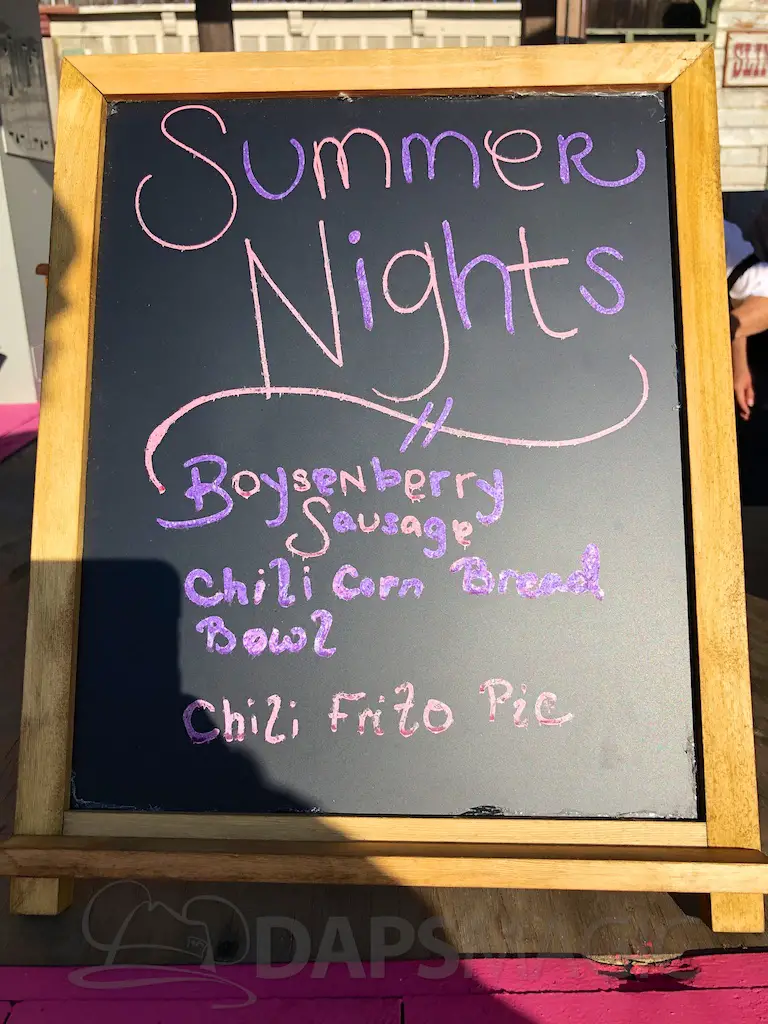 Summer
Nights
Boysenberry
Sausage
Chili Corn Bread
Bowl
Chili Frito Pie
DAPSMAGIC